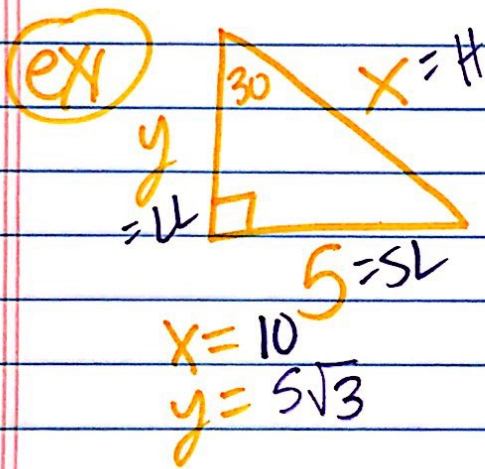 ex
30
x = H
y
= LL
5 = SL
x = 10
y = 5√3